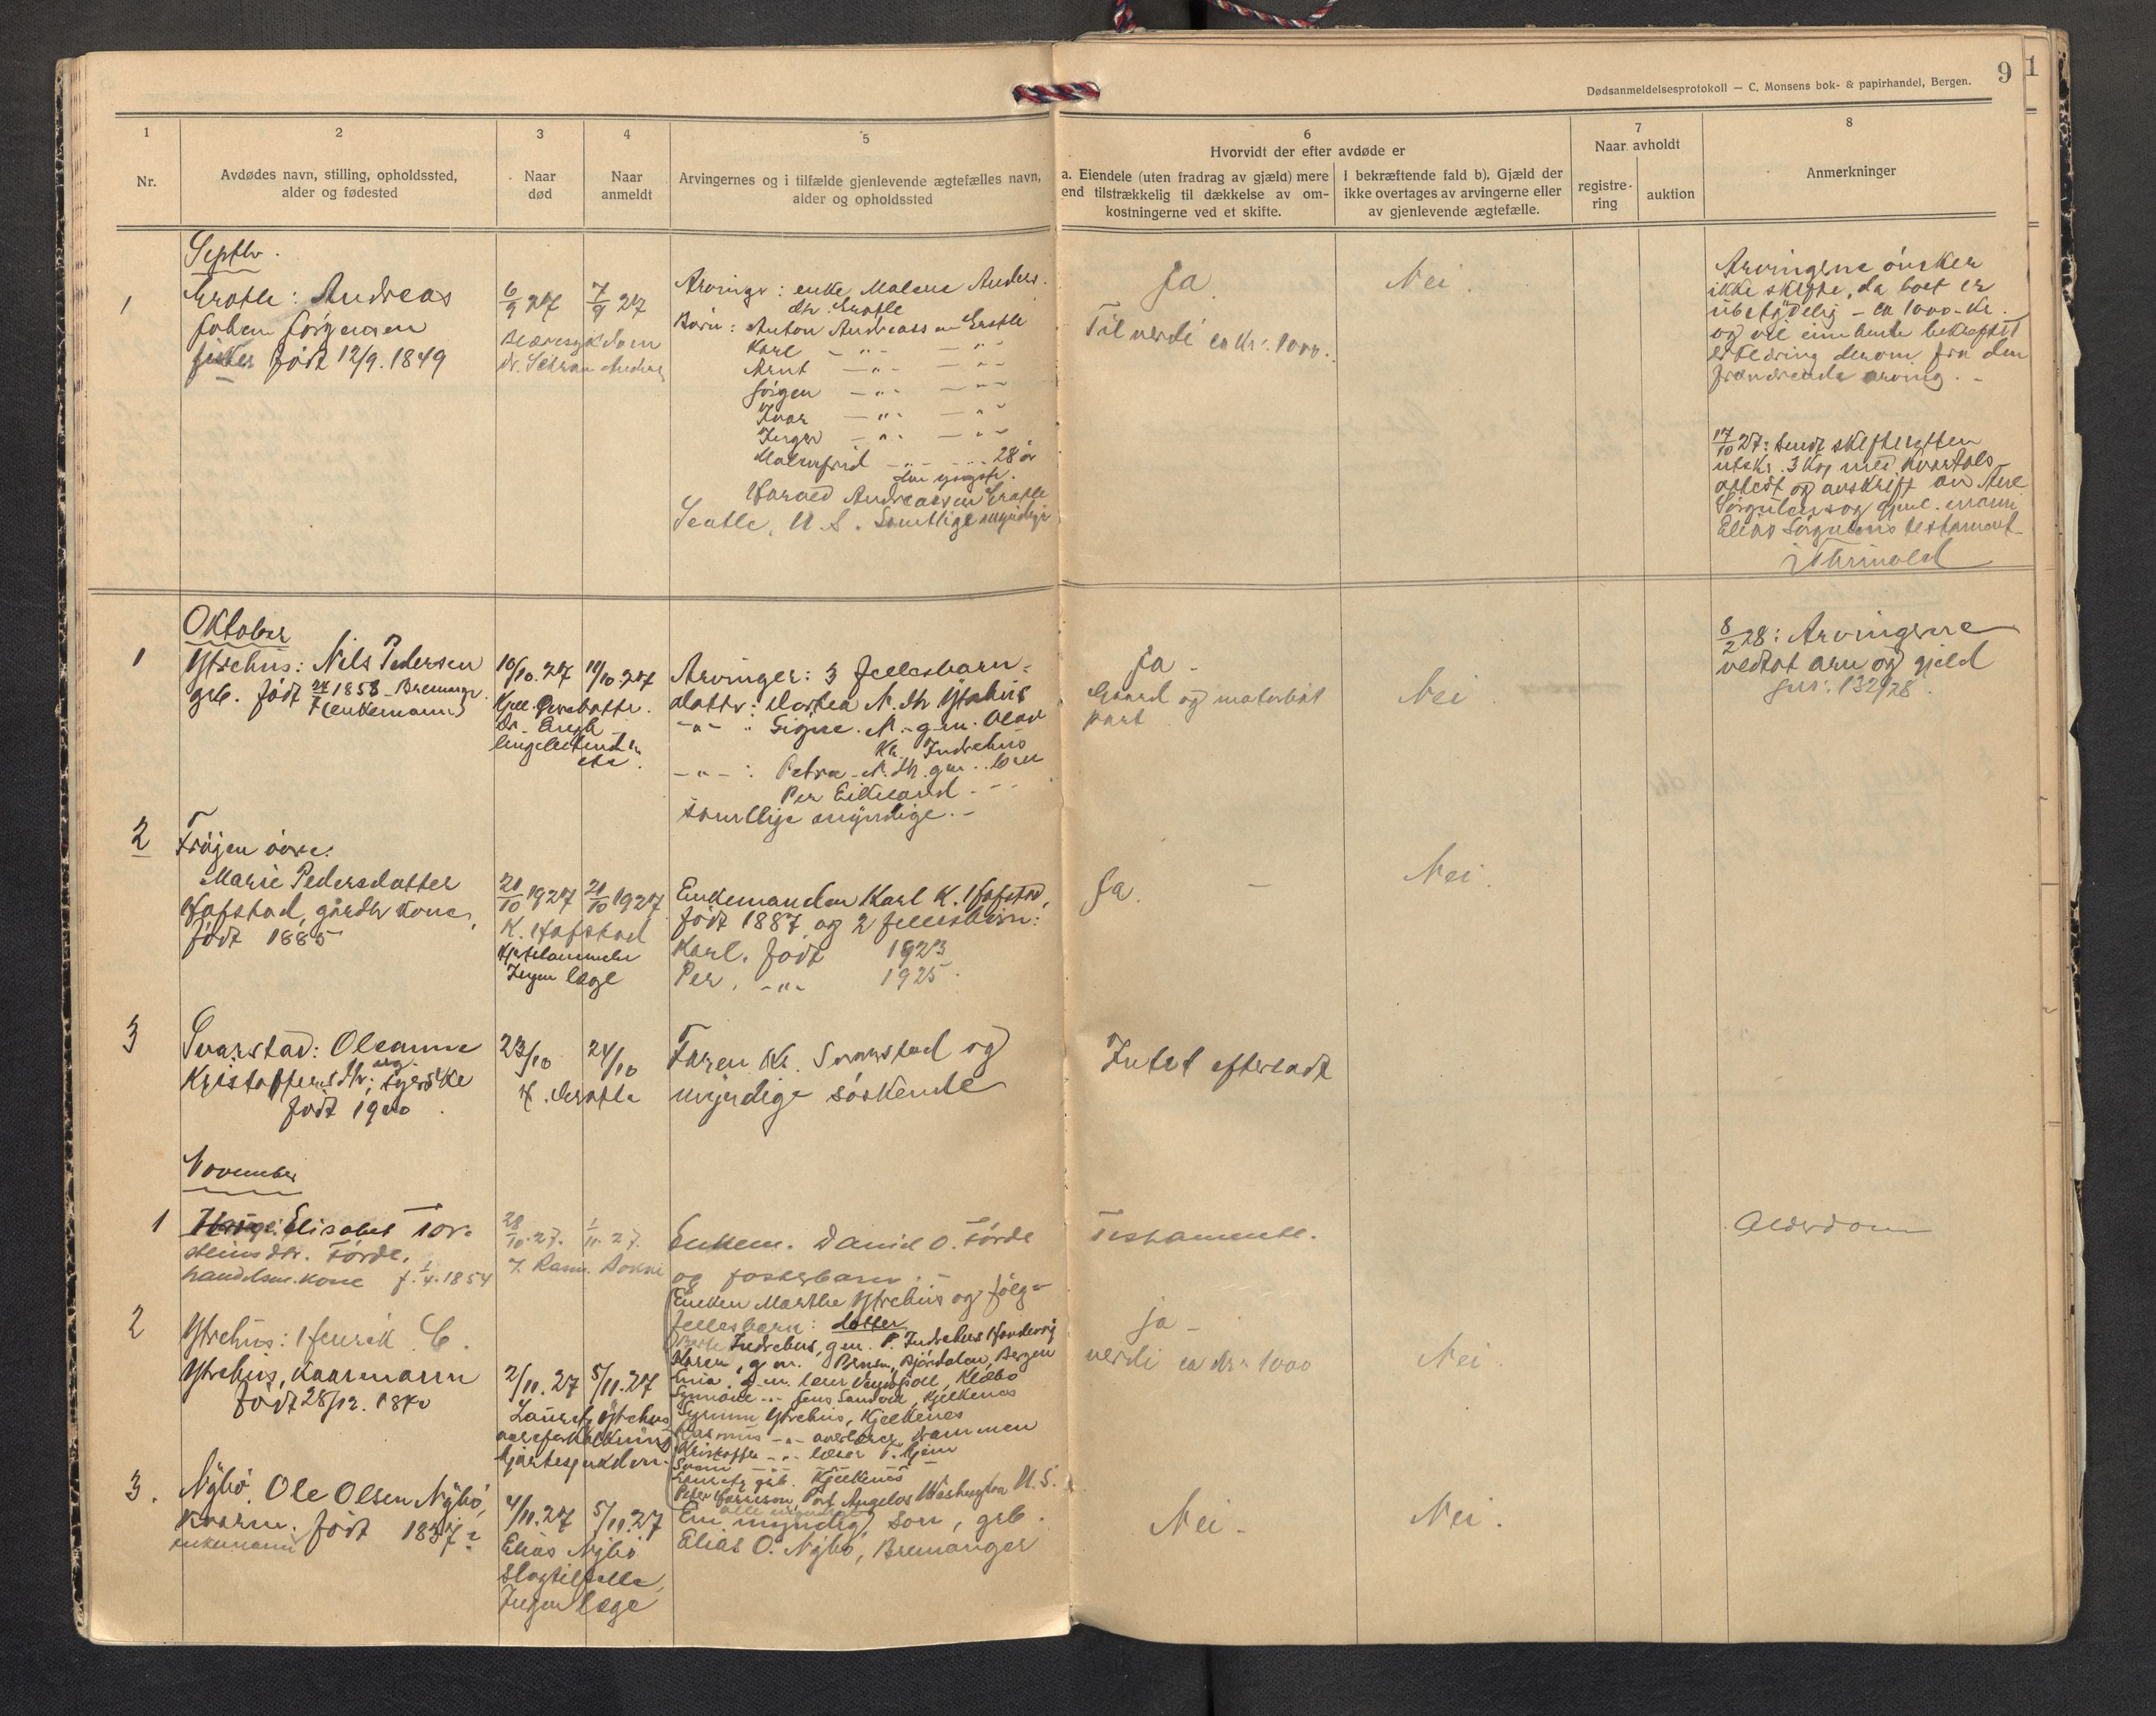 Dødsanmeldelsesprotokoll — C. Monsens bok- & papirhandel, Bergen.
9
1
1
Nr.
2
Avdødes navn, stilling, opholdssted,
alder og fødested
3
Naar
død
4
Naar
anmeldt
5
Arvingernes og i tilfælde gjenlevende ægtefælles navn,
alder og opholdssted
6
Hvorvidt der efter avdøde er
a. Eiendele (uten fradrag av gjæld) mere
end tilstrækkelig til dækkelse av om-
kostningerne ved et skifte.
I bekræftende fald b). Gjæld der
ikke overtages av arvingerne eller
av gjenlevende ægtefælle.
7
Naar avholdt
registre-
ring
auktion
8
Anmerkninger
Septbr.
1
Grotle: Andreas
Johan Jörgensen
fisker født 12/9. 1849
6/9 27
7/9 27
Blæresykdom
Arvinge: enke Malene Anders.
dtr. Grotle
Barn: Anton Andreassen Grotle
Karl — „ — „
Arnt — „ — „
Jörgen — „ — „
Ivar — „ — „
Inger — „ — „
Malenfrid — „ — 28 år
den yngste.
Harald Andreassen Grotle
Seatle, U.S. Samtlige myndige
Ja
Til verdi ca kr. 1000.
Nei.
Arvingerne önsker
ikke skifte, da boet er
ubetydelig – ca 1000 kr.
og vil
erklæring derom fra den
fraværende arving. –
17/10 27: Sendt skifteretten
utskr. 3 kop med kvartals
og avskrift av
og gjenl. mann
Elias testament
Oktober
1
Ytrehus: Nils Pedersen
grb. født 24/7 1858 – Bremanger.
(enkemann)
10/10. 27
11/10. 27
Arvinger: 3 fællesbarn =
datter: Dortea N. dtr Ytrehus
— „ — : Signe N. – g.m. Olav
Kr. Indrehus
— „ — : Petra N. dtr. g.m.
Per Eikeland – –
samtlige myndige. –
Ja –
Gaard og motorbåt
part
Nei.
8/2 28: Arvingerne
vedtat arv og gjeld
jnr. 132/28.
2
Fröjen övre:
Marie Pedersdatter
Hafstad, gårdb kone,
född 1885
21/10 1927
21/10 1927
K. Hafstad
Ingen læge
Enkemanden Karl K. Hafstad,
født 1887 og 2 fellesbörn:
Karl. født 1923
Per. — „ — 1925.
Ja. –
Nei.
3
Svarstad: Oleanna
Kristoffersdtr; ug. syerske
født 1900.
23/10
24/10
Faren Kr. Svarstad og
myndige söskende
Intet efterladt
November
1
Elisabet Tor-
steinsdtr. Förde,
handelsm. kone f. 1/4. 1854
28/10. 27.
1/11. 27.
Enkem. Daniel O. Förde
og fosterbarn. –
Testamente.
Alderdom
2
Ytrehus: Henrik C.
Ytrehus, kaarmann
født 28/12. 1840
2/11. 27
5/11. 27
Lauritz Ytrehus
aareforkalkning
hjertesykdom.
Enken Marthe Ytrehus og fölg=
fellesbarn: datter
Indrehus, g.m. P. Indrehus
Karen, g.m. Björdalen, Bergen
Jens Sandvik, Kjelkenes
Ytrehus, Kjelkenes
Rasmus — „ — overlærer, Drammen
Kristoffer — „ — lærer
Lauritz grb. Kjelkenes
Peter Harrison, Port Angelos Washington U.S.
alle myndige
Ja –
verdi ca kr. 1000
Nei.
3.
Nybö. Ole Olsen Nybö,
kaarm. født 1837
enkemann
4/11. 27
5/11. 27
Elias Nybö
Slagtilfelle,
Ingen læge
En myndig son, grb.
Elias O. Nybö, Bremanger
Nei –
Nei.